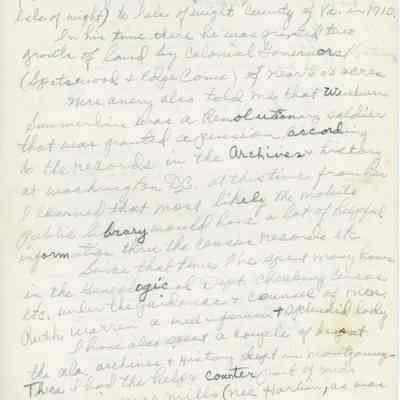 Isle of wight) to Isle of wight County of Va. in 1710.
In his time there he was granted two
grants of land by Colonial Governors
(Spotswood & Edge Come) of near 600 acres
Mrs. Avery also told me that
Summerlin was a Revolutionary soldier
that was granted a pension according
to the records in the Archives & history
at Washington D.C. at this time from her
I learned that most likely the Mobile
Public Library would have a lot of helpful
information thru the census records etc.
Since that time I've spent many hours
in the Genealogical Dept. checking census
etc. under the guidance & counsel of Mrs.
Ruth Warren a well informed & splendid lady
I have also spent a couple of days at
the ala. archives & History dept. in Montgomery.
There I had the help & of Mrs
Mills (nee Harlin, as was